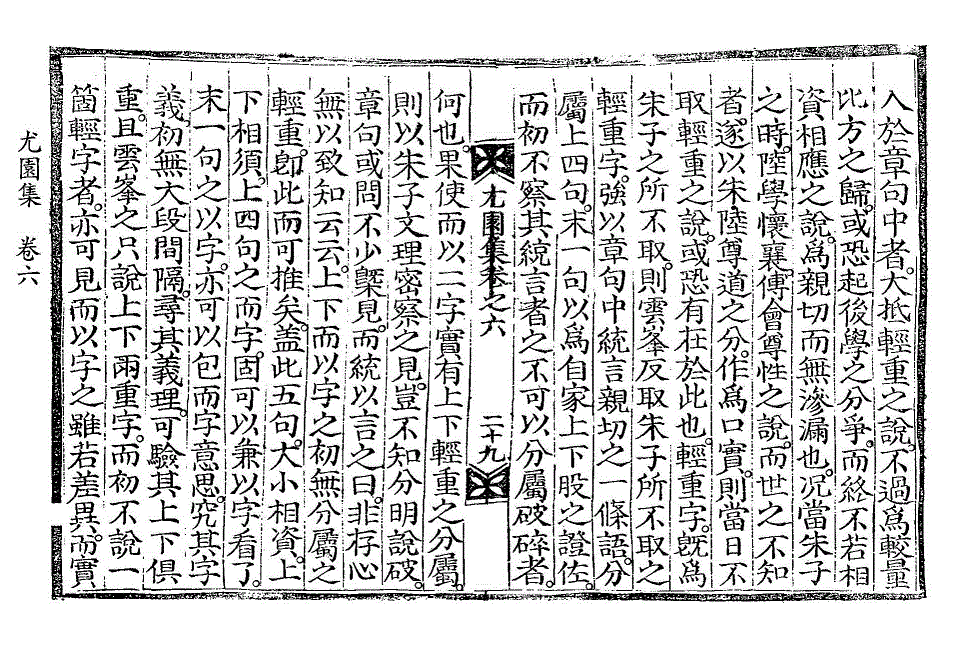 入於章句中者。大抵輕重之說。不過爲較量
比方之歸。或恐起後學之分爭。而終不若相
資相應之說。爲親切而無滲漏也。况當朱子
之時。陸學懷襄。傅會尊性之說。而世之不知
者。遂以朱陸尊道之分。作爲口實。則當日不
取輕重之說。或恐有在於此也。輕重字。旣爲
朱子之所不取。則雲峯反取朱子所不取之
輕重字。強以章句中統言親切之一條語。分
屬上四句。末一句以爲自家上下股之證佐。
而初不察其統言者之不可以分屬破碎者。
尤園集卷之六 二十九
何也。果使而以二字。實有上下輕重之分屬。
則以朱子文理密察之見。豈不知分明說破。
章句或問不少槩見。而統以言之曰。非存心
無以致知云云。上下而以字之初無分屬之
輕重。卽此而可推矣。盖此五句。大小相資。上
下相須。上四句之而字。固可以兼以字看了。
末一句之以字。亦可以包而字意思。究其字
義。初無大段間隔。尋其義理。可驗其上下俱
重。且雲峯之只說上下兩重字。而初不說一
箇輕字者。亦可見而以字之雖若差異。而實
尤園集 卷六